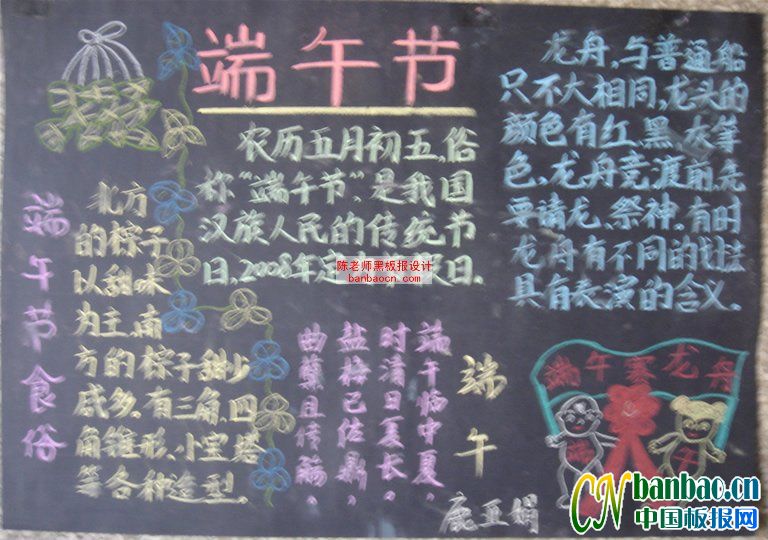 端午节
农历五月初五，俗
称“端午节”，是我国
汉族人民的传统节
日，2008年定 假日．
陈老师黑板报设计
banbaocn.com
龙舟，与普通船
只不大相同，龙头的
颜色有红、黑、灰等
色，龙舟竞渡前，先
要请龙、祭神。有时
龙舟有不同的划法
具有表演的含义。
端午节食俗
北方
的粽子
以甜味
为主，南
方的粽子甜少
咸多，有三角，四
角锥形，小宝塔
等各种造型．
端午
端午临中夏，
时清日复长。
盐梅已佐鼎，
曲蘖且传觞。
端午赛龙舟
CN banbao.cn
中国板报网